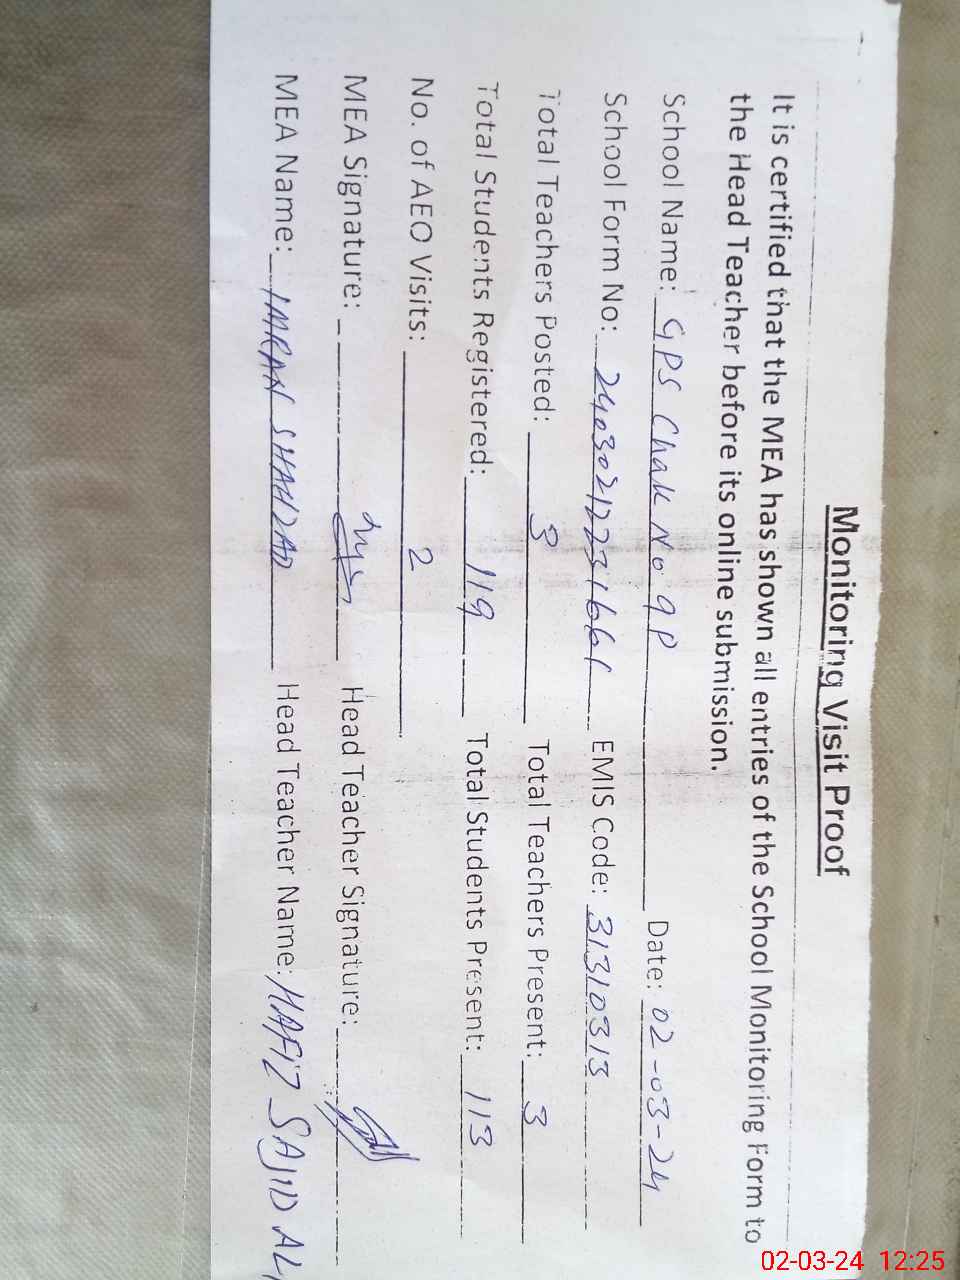 Monitoring Visit Proof
It is certified that the MEA has shown all entries of the School Monitoring Form to
the Head Teacher before its online submission.
School Name: GPS Chak No 9P Date: 02-03-24
School Form No: 24030212231661 EMIS Code: 31310313
Total Teachers Posted: 3 Total Teachers Present: 3
Total Students Registered: 119 Total Students Present: 113
No. of AEO Visits: 2
MEA Signature: Head Teacher Signature:
MEA Name: IMRAN SHAHZAD Head Teacher Name: HAFIZ SAJID ALI
02-03-24 12:25